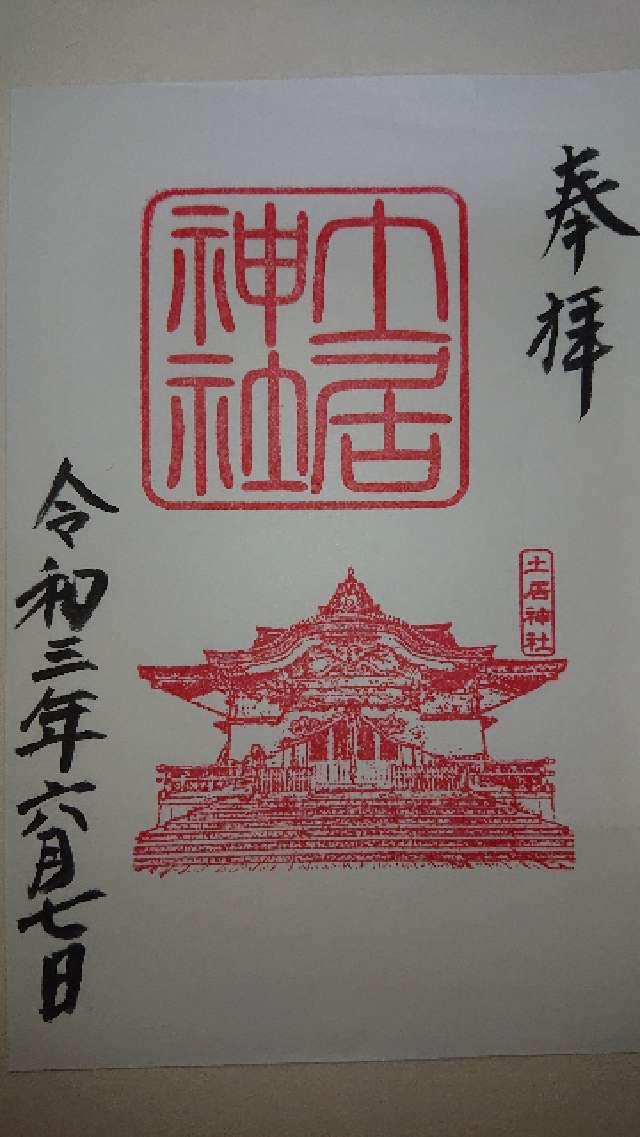 奉拝
土居
神社
土居神社
令和三年六月七日